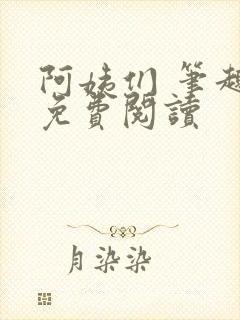 阿姨们 筆趣
免費閱讀
月染染